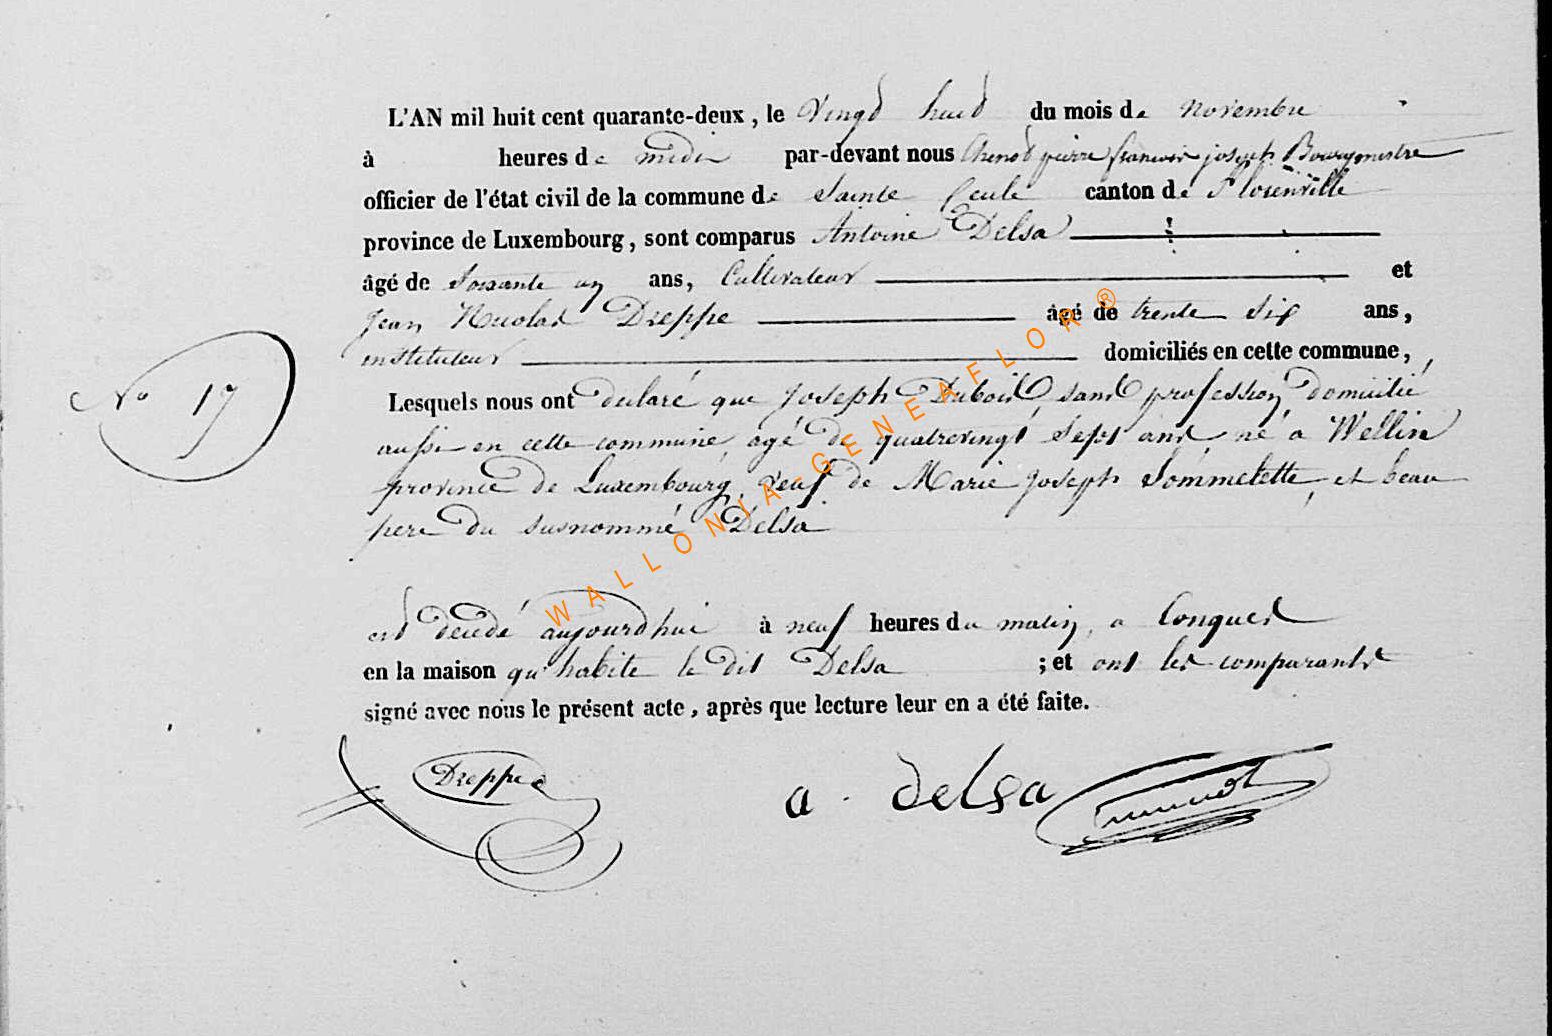 L'AN mil huit cent quarante-deux, le vingt huit du mois de novembre
à heures de midi par-devant nous Chenot pierre francois joseph Bourgmestre
officier de l'état civil de la commune de Sainte Cecile canton de Florenville
province de Luxembourg, sont comparus Antoine Delsa
âgé de soixante un ans, Cultivateur et
Jean Nicolas Dreppe âgé de trente six ans,
instituteur domiciliés en cette commune,
N° 17
Lesquels nous ont declaré que Joseph Dubois, sans profession domicilié
aussi en cette commune, agé de quatrevingt sept ans né a Wellin
province de Luxembourg, veuf de Marie Joseph Sommelette, et beau
pere du susnommé Delsa
est decedé aujourdhui à neuf heures du matin, a Conques
en la maison qu'habite le dit Delsa ; et ont les comparants
signé avec nous le présent acte, après que lecture leur en a été faite.
Dreppe a. delsa Chenot
WALLONIA-GENEAFLOR ®